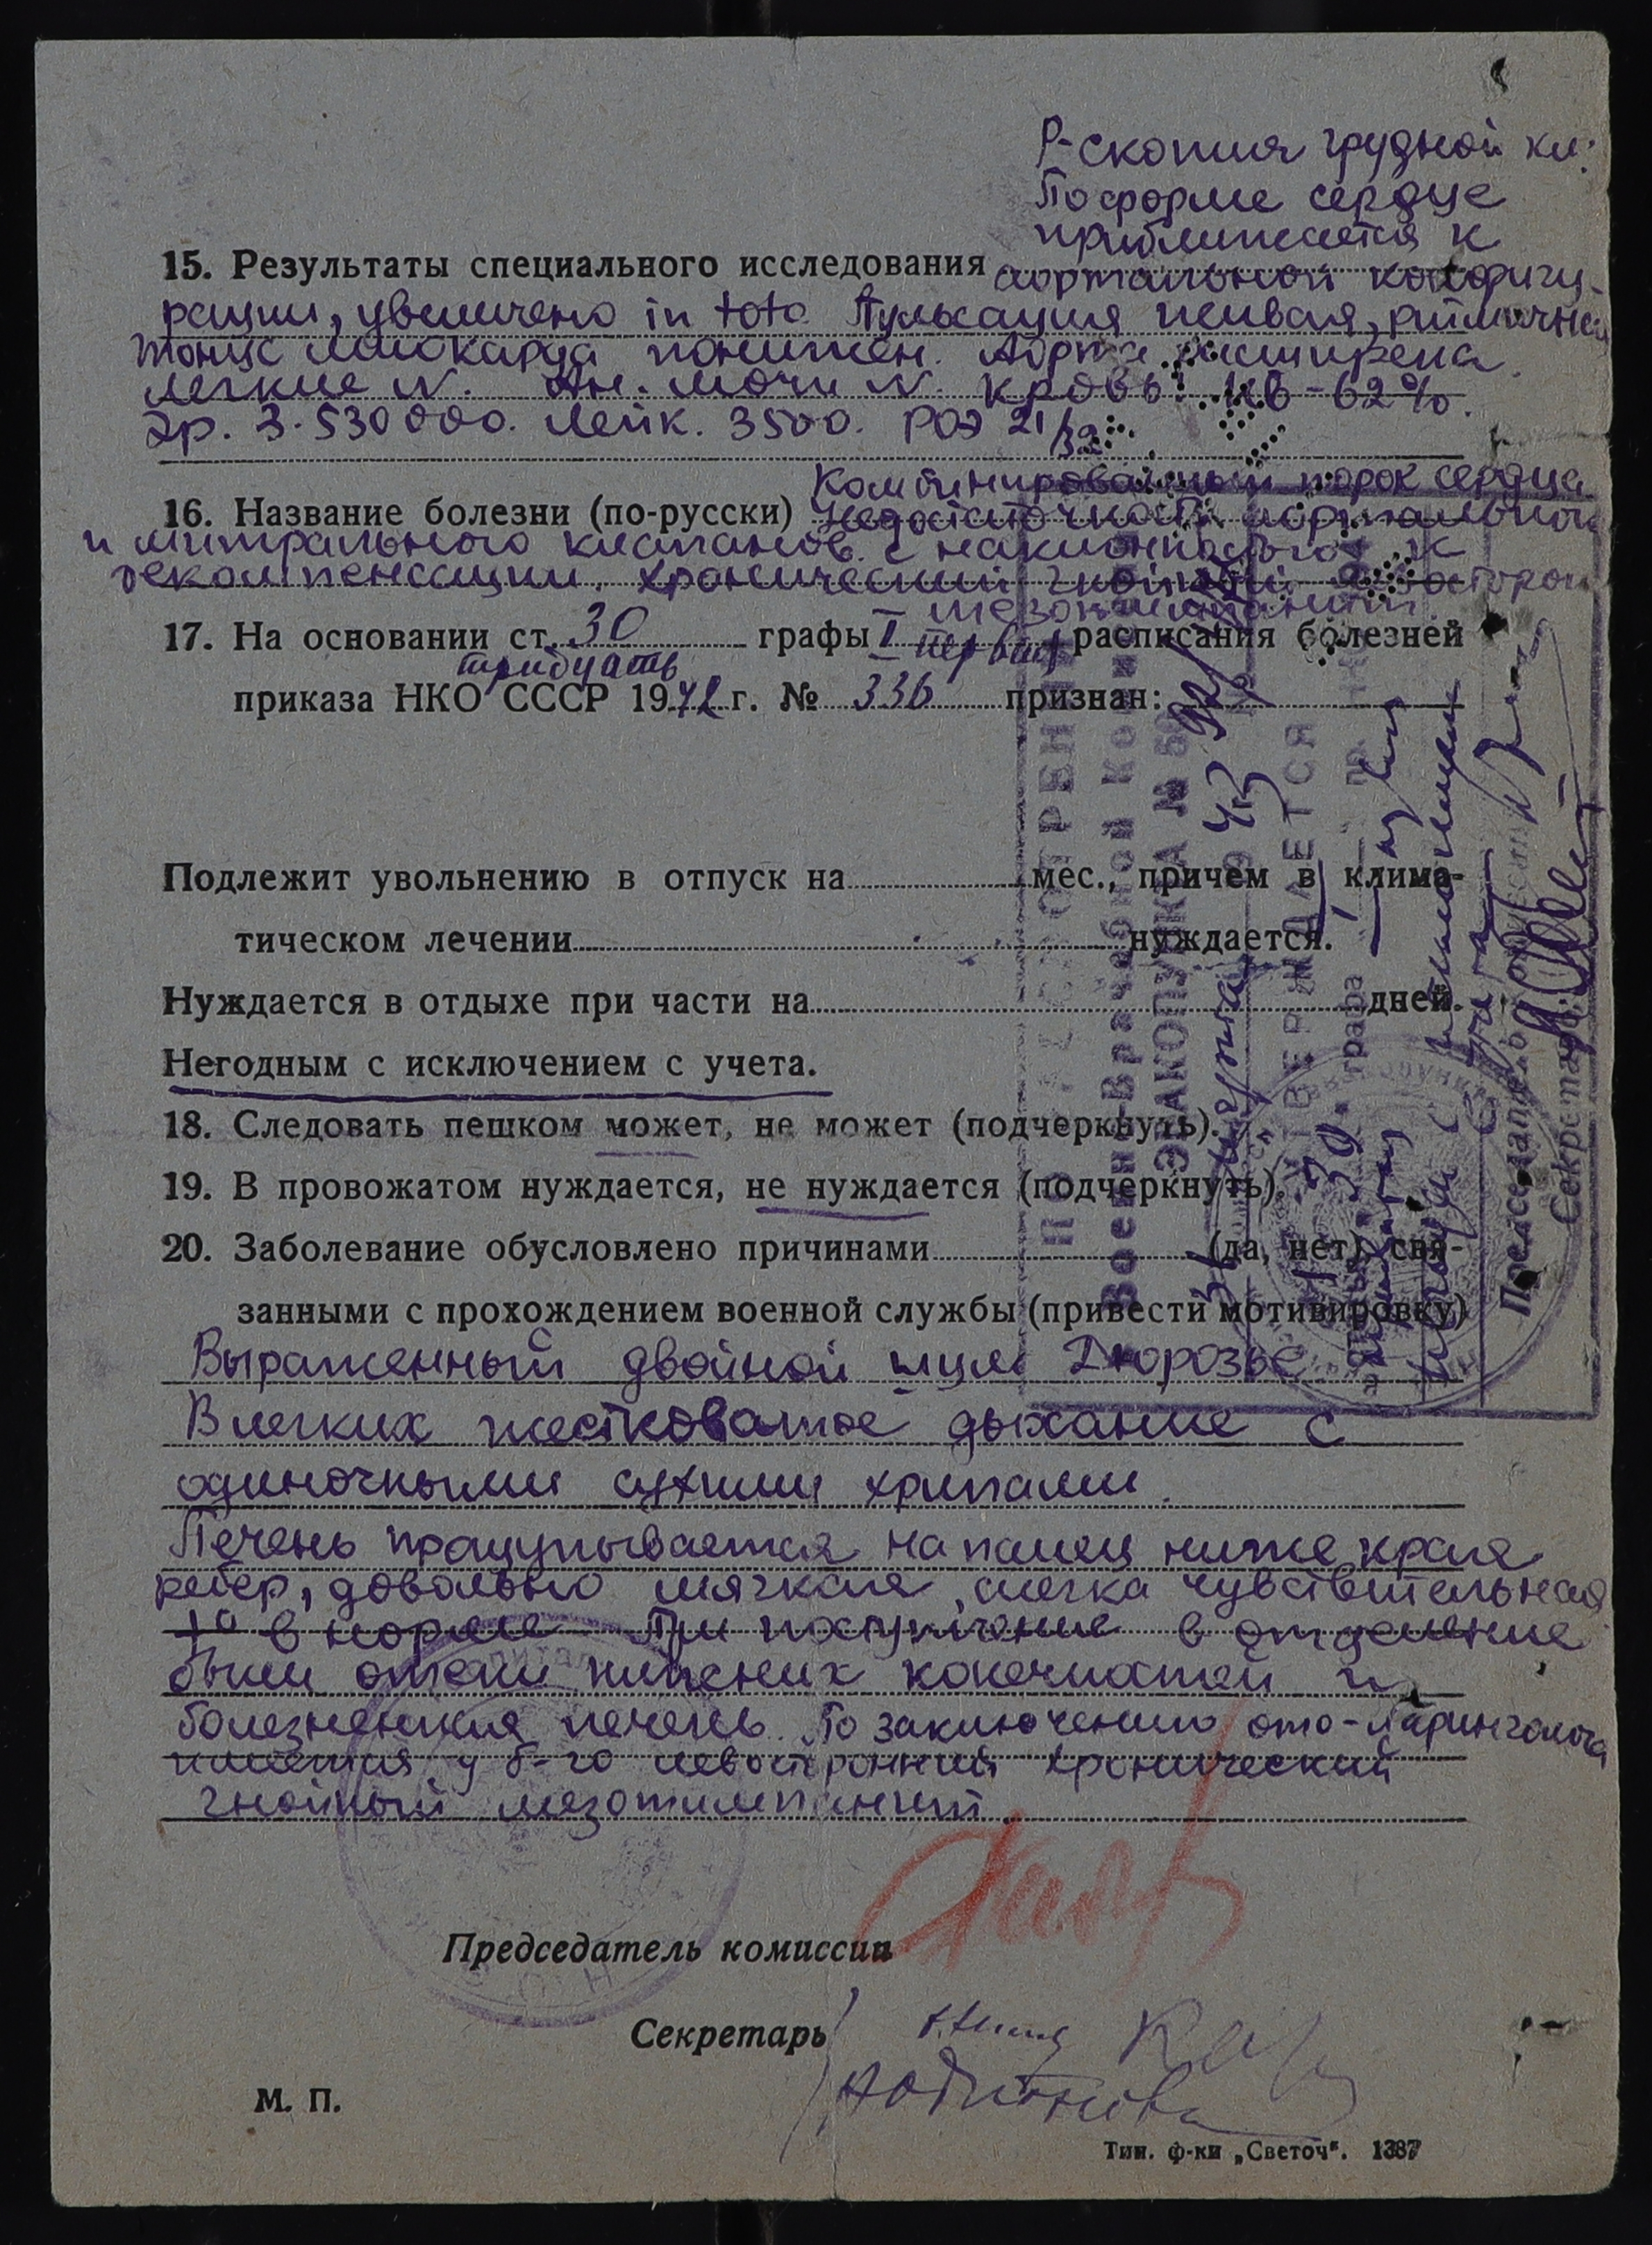 Р-скопия грудной кл:
По форме сердце
приближается к
15. Результаты специального исследования аортальной конфигу-
рации, увеличено in toto Пульсация живая, ритмичная
тонус миокарда понижен. Аорта расширена.
Легкие N. Ан. мочи N. Кровь: Нв-62%.
Эр. 3.530000. Лейк. 3500. РОЭ 21/32
Комбинированный порок сердца
16. Название болезни (по-русски) недостаточность аортального
и митрального клапанов с наклонностью к
декомпенсации. Хронический гнойный
мезотимпанит.
17. На основании ст. 30 графы I расписания болезней
тридцать первая
приказа НКО СССР 1942 г. № 336 признан:
Подлежит увольнению в отпуск на мес., причем в клима-
тическом лечении нуждается.
Нуждается в отдыхе при части на дней.
Негодным с исключением с учета.
18. Следовать пешком может, не может (подчеркнуть).
19. В провожатом нуждается, не нуждается (подчеркнуть).
20. Заболевание обусловлено причинами (да, нет), свя-
занными с прохождением военной службы (привести мотивировку)
Выраженный двойной шум Дюрозье
В легких жестковатое дыхание с
одиночными сухими хрипами.
Печень прощупывается на палец ниже края
ребер, довольно мягкая, слегка чувствительная
t° в норме При поступление в отделение
были отеки нижних конечностей и
болезненная печень. По заключению ото-ларинголога
имеется у б-го левосторонний хронический
гнойный мезотимпанит.
Председатель комиссии
Секретарь
М. П.
Тип. ф-ки „Светоч“. 1387
Военно-Врачебной
ЭВАКОПУНКТА №
УТВЕРЖДАЕТСЯ
графа
Председатель
Секретарь